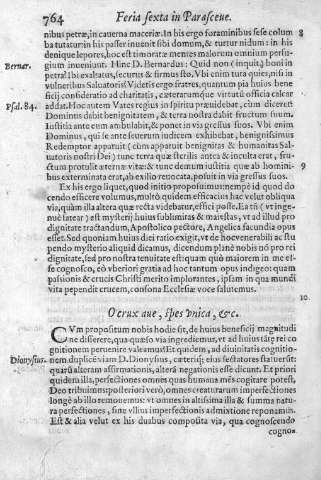 764 Feria sexta in Parasceue.
nibus petræ, in cauerna maceriæ. In his ergo foraminibus sese colum 8
ba tutatur in his passer inuenit sibi domum, & turtur nidum: in his
denique lepores, hoc est timoratæ mentes malorum omnium perfu-
gium inueniunt. Hinc D. Bernardus: Quid non (inquit) boni in
Bernar.
petra? Ibi exaltatus, securus & firmus sto. Vbi enim tuta quies, nisi in
vulneribus Saluatoris? Videtis ergo fratres, quantum pia huius bene
ficij consideratio ad charitatis, cæterarumque virtutũ officia calcar
Psal. 84.
addat. Hoc autem Vates regius in spiritu præuidebat, cùm diceret:
Dominus dabit benignitatem, & terra nostra dabit fructum suum.
Iustitia ante eum ambulabit, & ponet in via gressus suos. Vbi enim
Dominus, qui se ante seuerum iudicem exhibebat, benignissimus
Redemptor apparuit (cùm apparuit benignitas & humanitas Sal-
uatoris nostri Dei) tunc terra quæ sterilis antea & inculta erat, fru-
ctum protulit æternæ vitæ: & tunc demum iustitia quæ ab homi- 9
nibus exterminata erat, ab exilio reuocata, posuit in via gressus suos.
Ex his ergo liquet, quod initio proposuimus: nempe id quod do
cendo efficere volumus, multò quidem efficacius hac velut obliqua
via, quàm illa altera quæ recta videbatur, effici posse. Ea tñ (vt inge-
nuè fatear) est mysterij huius sublimitas & maiestas, vt ad illud pro
dignitate tractandum, Apostolico pectore, Angelica facundia opus
esset. Sed quoniam huius diei ratio exigit, vt de hoc venerabili ac stu
pendo mysterio aliquid dicamus, dicendum planè nobis nõ pro rei
dignitate, sed pro nostra tenuitate est: quam quò maiorem in me es-
se cognosco, eò vberiori gratia ad hoc tantum opus indigeo: quam
passionis & crucis Christi merito implorantes, ipsam in qua mundi
vita pependit crucem, consona Ecclesiæ voce salutemus.
10.
O crux aue, spes vnica, &c.
CVm propositum nobis hodie sit, de huius beneficij magnitudi
ne disserere, qua quæso via ingrediemur, vt ad huius tãtę rei co
gnitionem peruenire valeamus? Et quidem, ad diuinitatis cognitio-
Dionysius.
nem duplicē viam D. Dionysius, cæteriq; eius sectatores statuerũt:
quarũ alteram affirmationis, alterã negationis esse dicunt. Et priori
quidem illa, perfectiones omnes quas humana mēs cogitare potest,
Deo tribuimus: posteriori verò, omnes creaturarum imperfectiones
longè ab illo remouemus: vt omnes in altissima illa & summa natu-
ra perfectiones, sine vllius imperfectionis admixtione reponamus.
Est & alia velut ex his duabus composita via, qua cognoscendo
cogno-